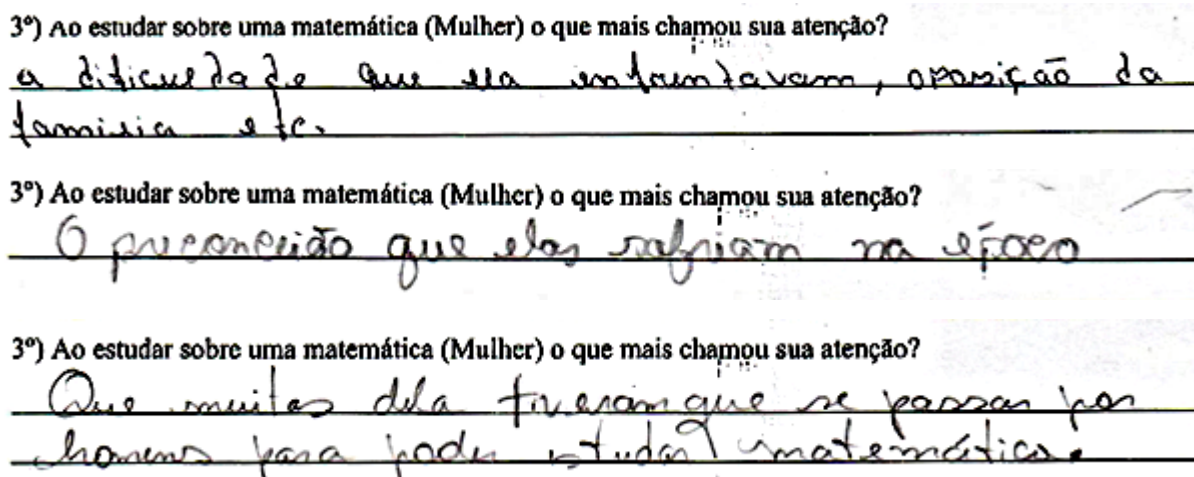 3º) Ao estudar sobre uma matemática (Mulher) o que mais chamou sua atenção?
a dificuldade que ela enfrentavam, oposição da
familia etc.
3º) Ao estudar sobre uma matemática (Mulher) o que mais chamou sua atenção?
O preconceito que elas sofriam na época
3º) Ao estudar sobre uma matemática (Mulher) o que mais chamou sua atenção?
Que muitas dela tiveram que se passar por
homens para poder estudar matemática.